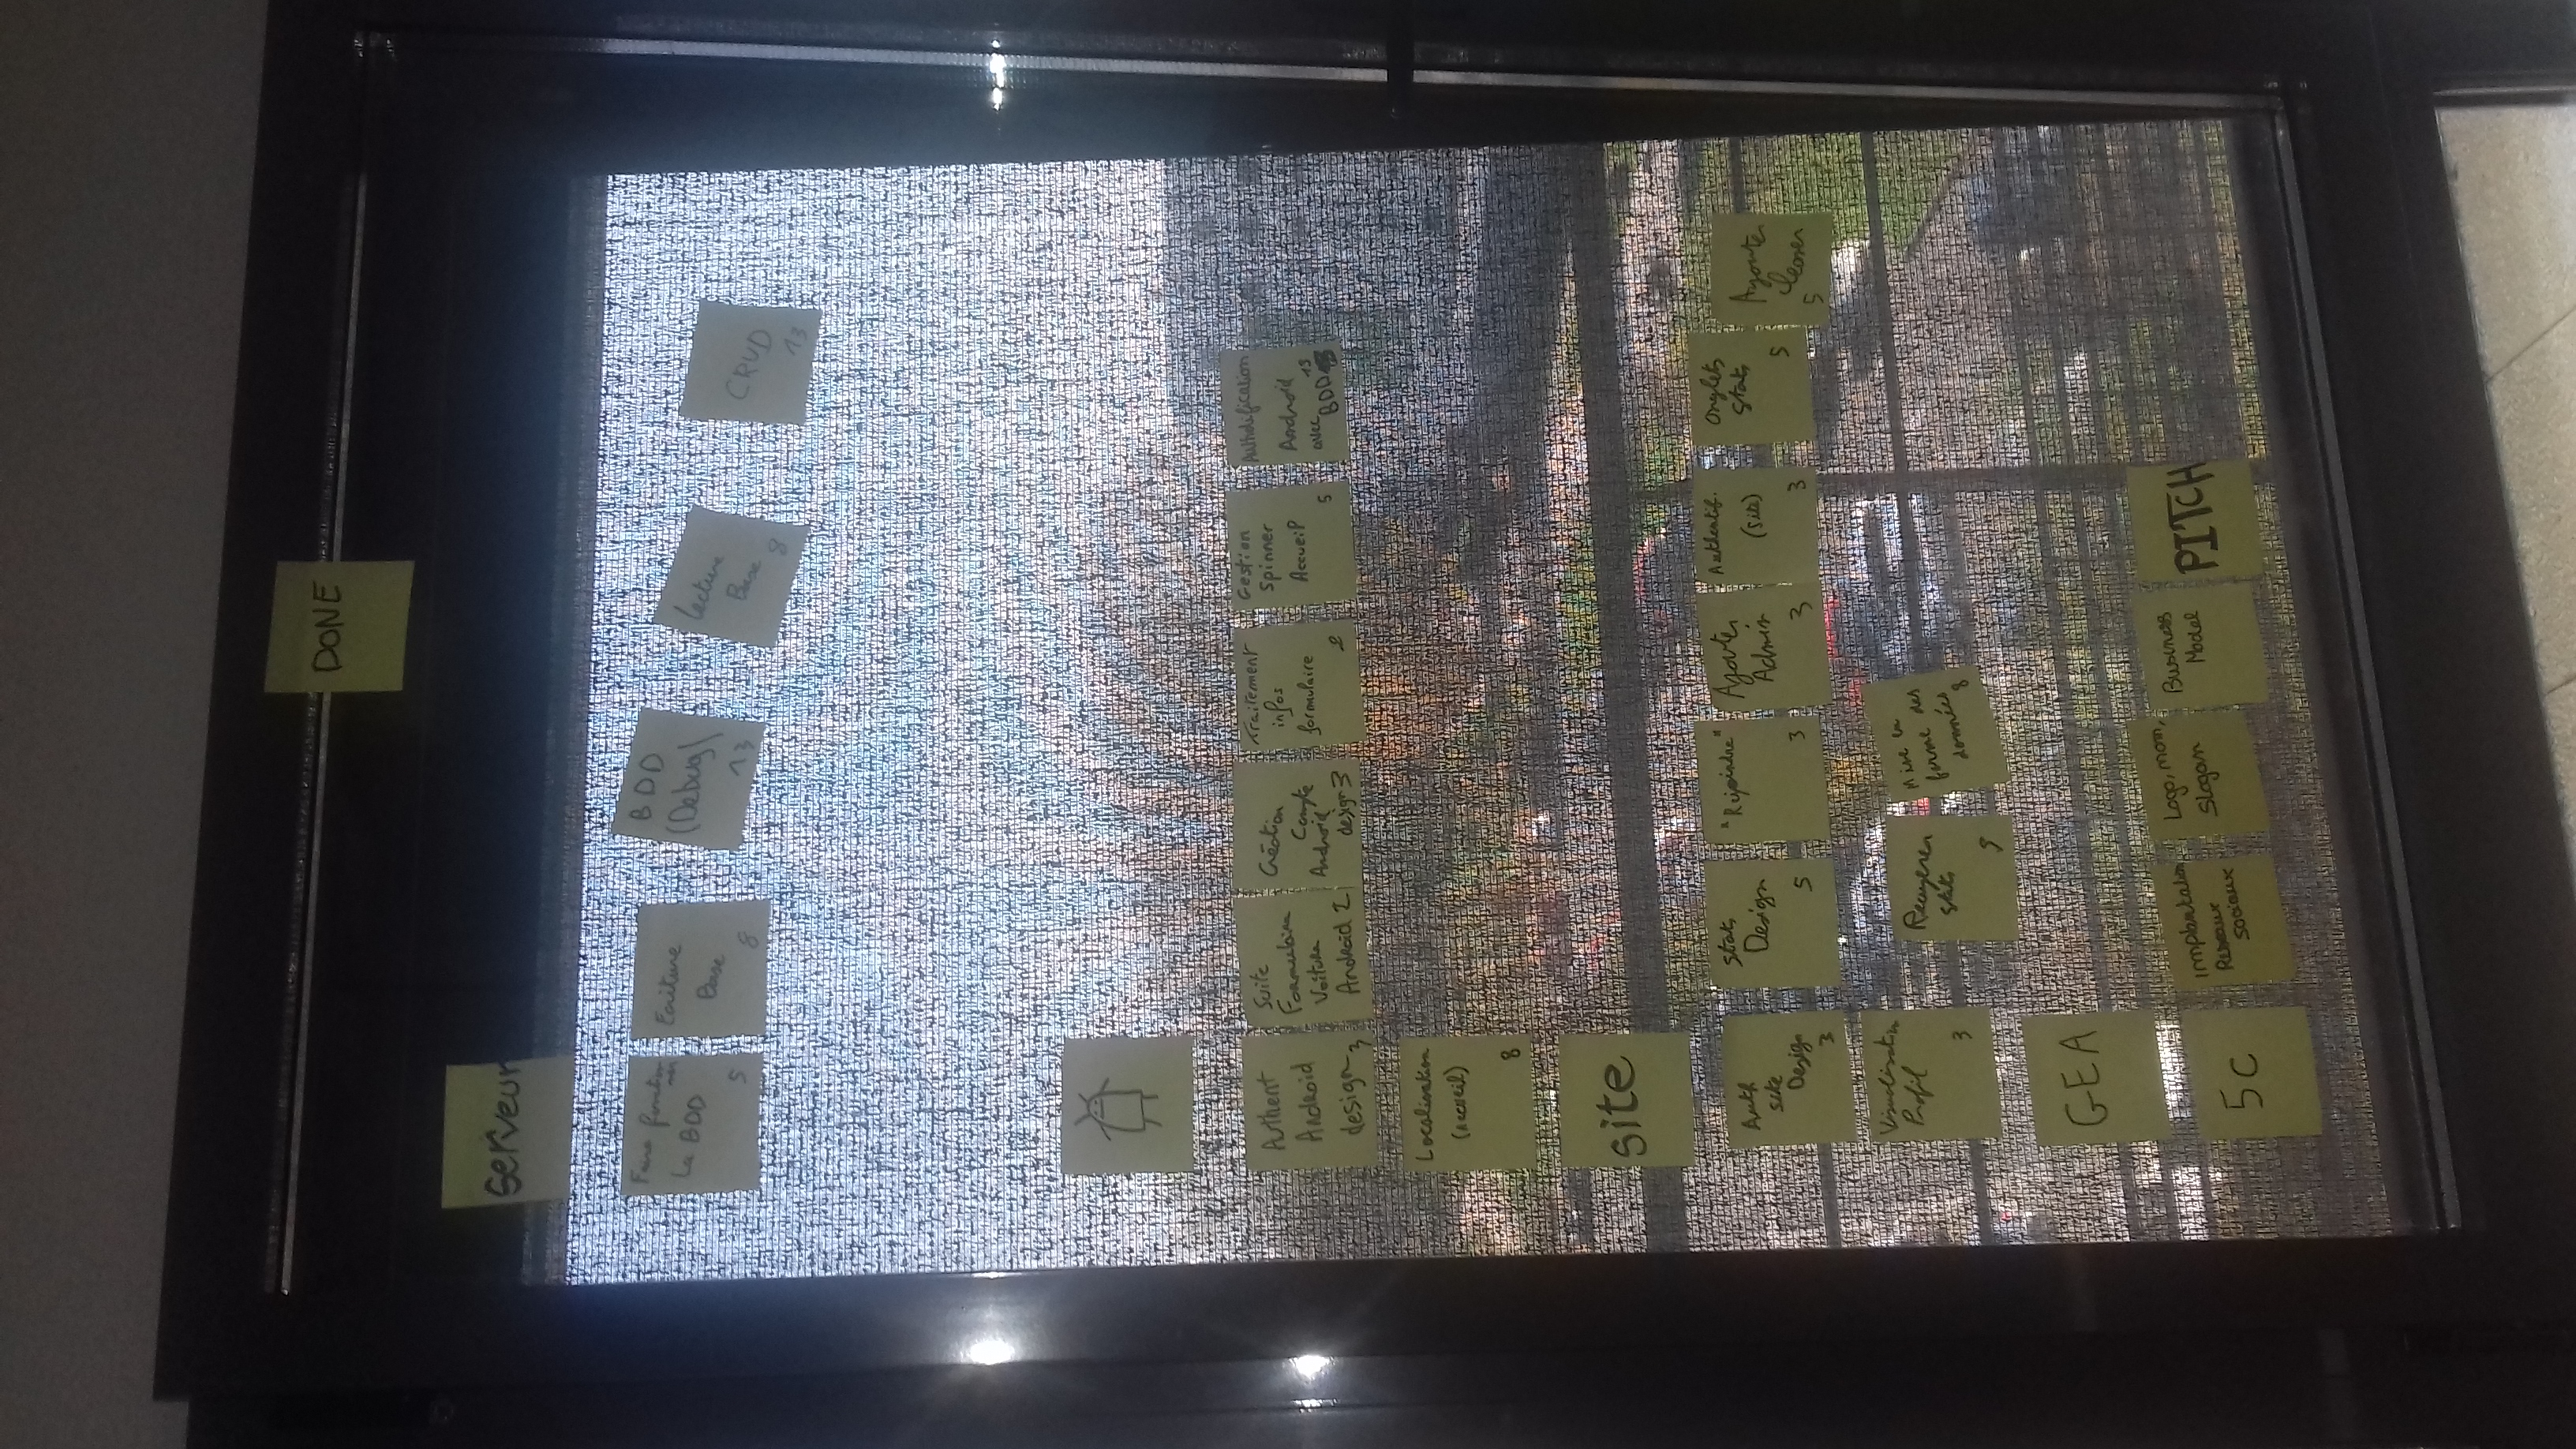 DONE
Serveur
Faire fonction
ner
La BDD
5
Ecriture
Base
8
BDD
(Debug)
13
Lecture
Base
8
CRUD
13
Authent
Android
design
3
Suite
Formulaire
Voiture
Android 2
Création
Compte
Android
design 3
Traitement
infos
formulaire
2
Gestion
Spinner
Accueil
5
Android
avec
BDD
13
Localisation
(accueil)
8
site
Auth
site
Design
3
Stats
Design
5
"Rejoindre"
3
Ajouter
Admin
3
Authentif.
(Site)
3
Onglets
Stats
5
Ajouter
5
Visualisation
Profil
3
Recuperer
stats
Mise en
forme des
données
8
GEA
5C
Implantation
Réseaux
sociaux
Logo, nom,
Slogan
Business
Model
PITCH